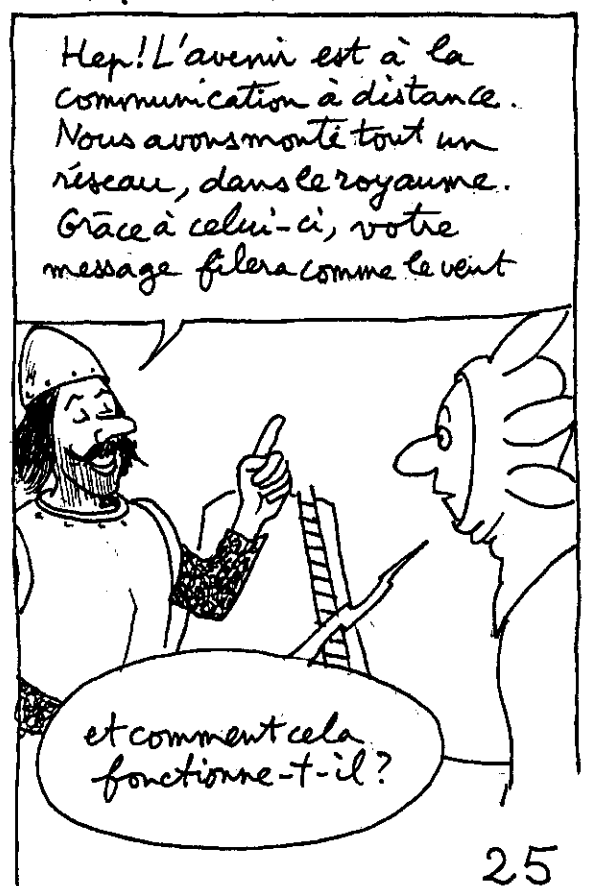 Hep! L'avenir est à la
communication à distance.
Nous avons monté tout un
réseau, dans le royaume.
Grâce à celui-ci, votre
message filera comme le vent
et comment cela
fonctionne-t-il?
25